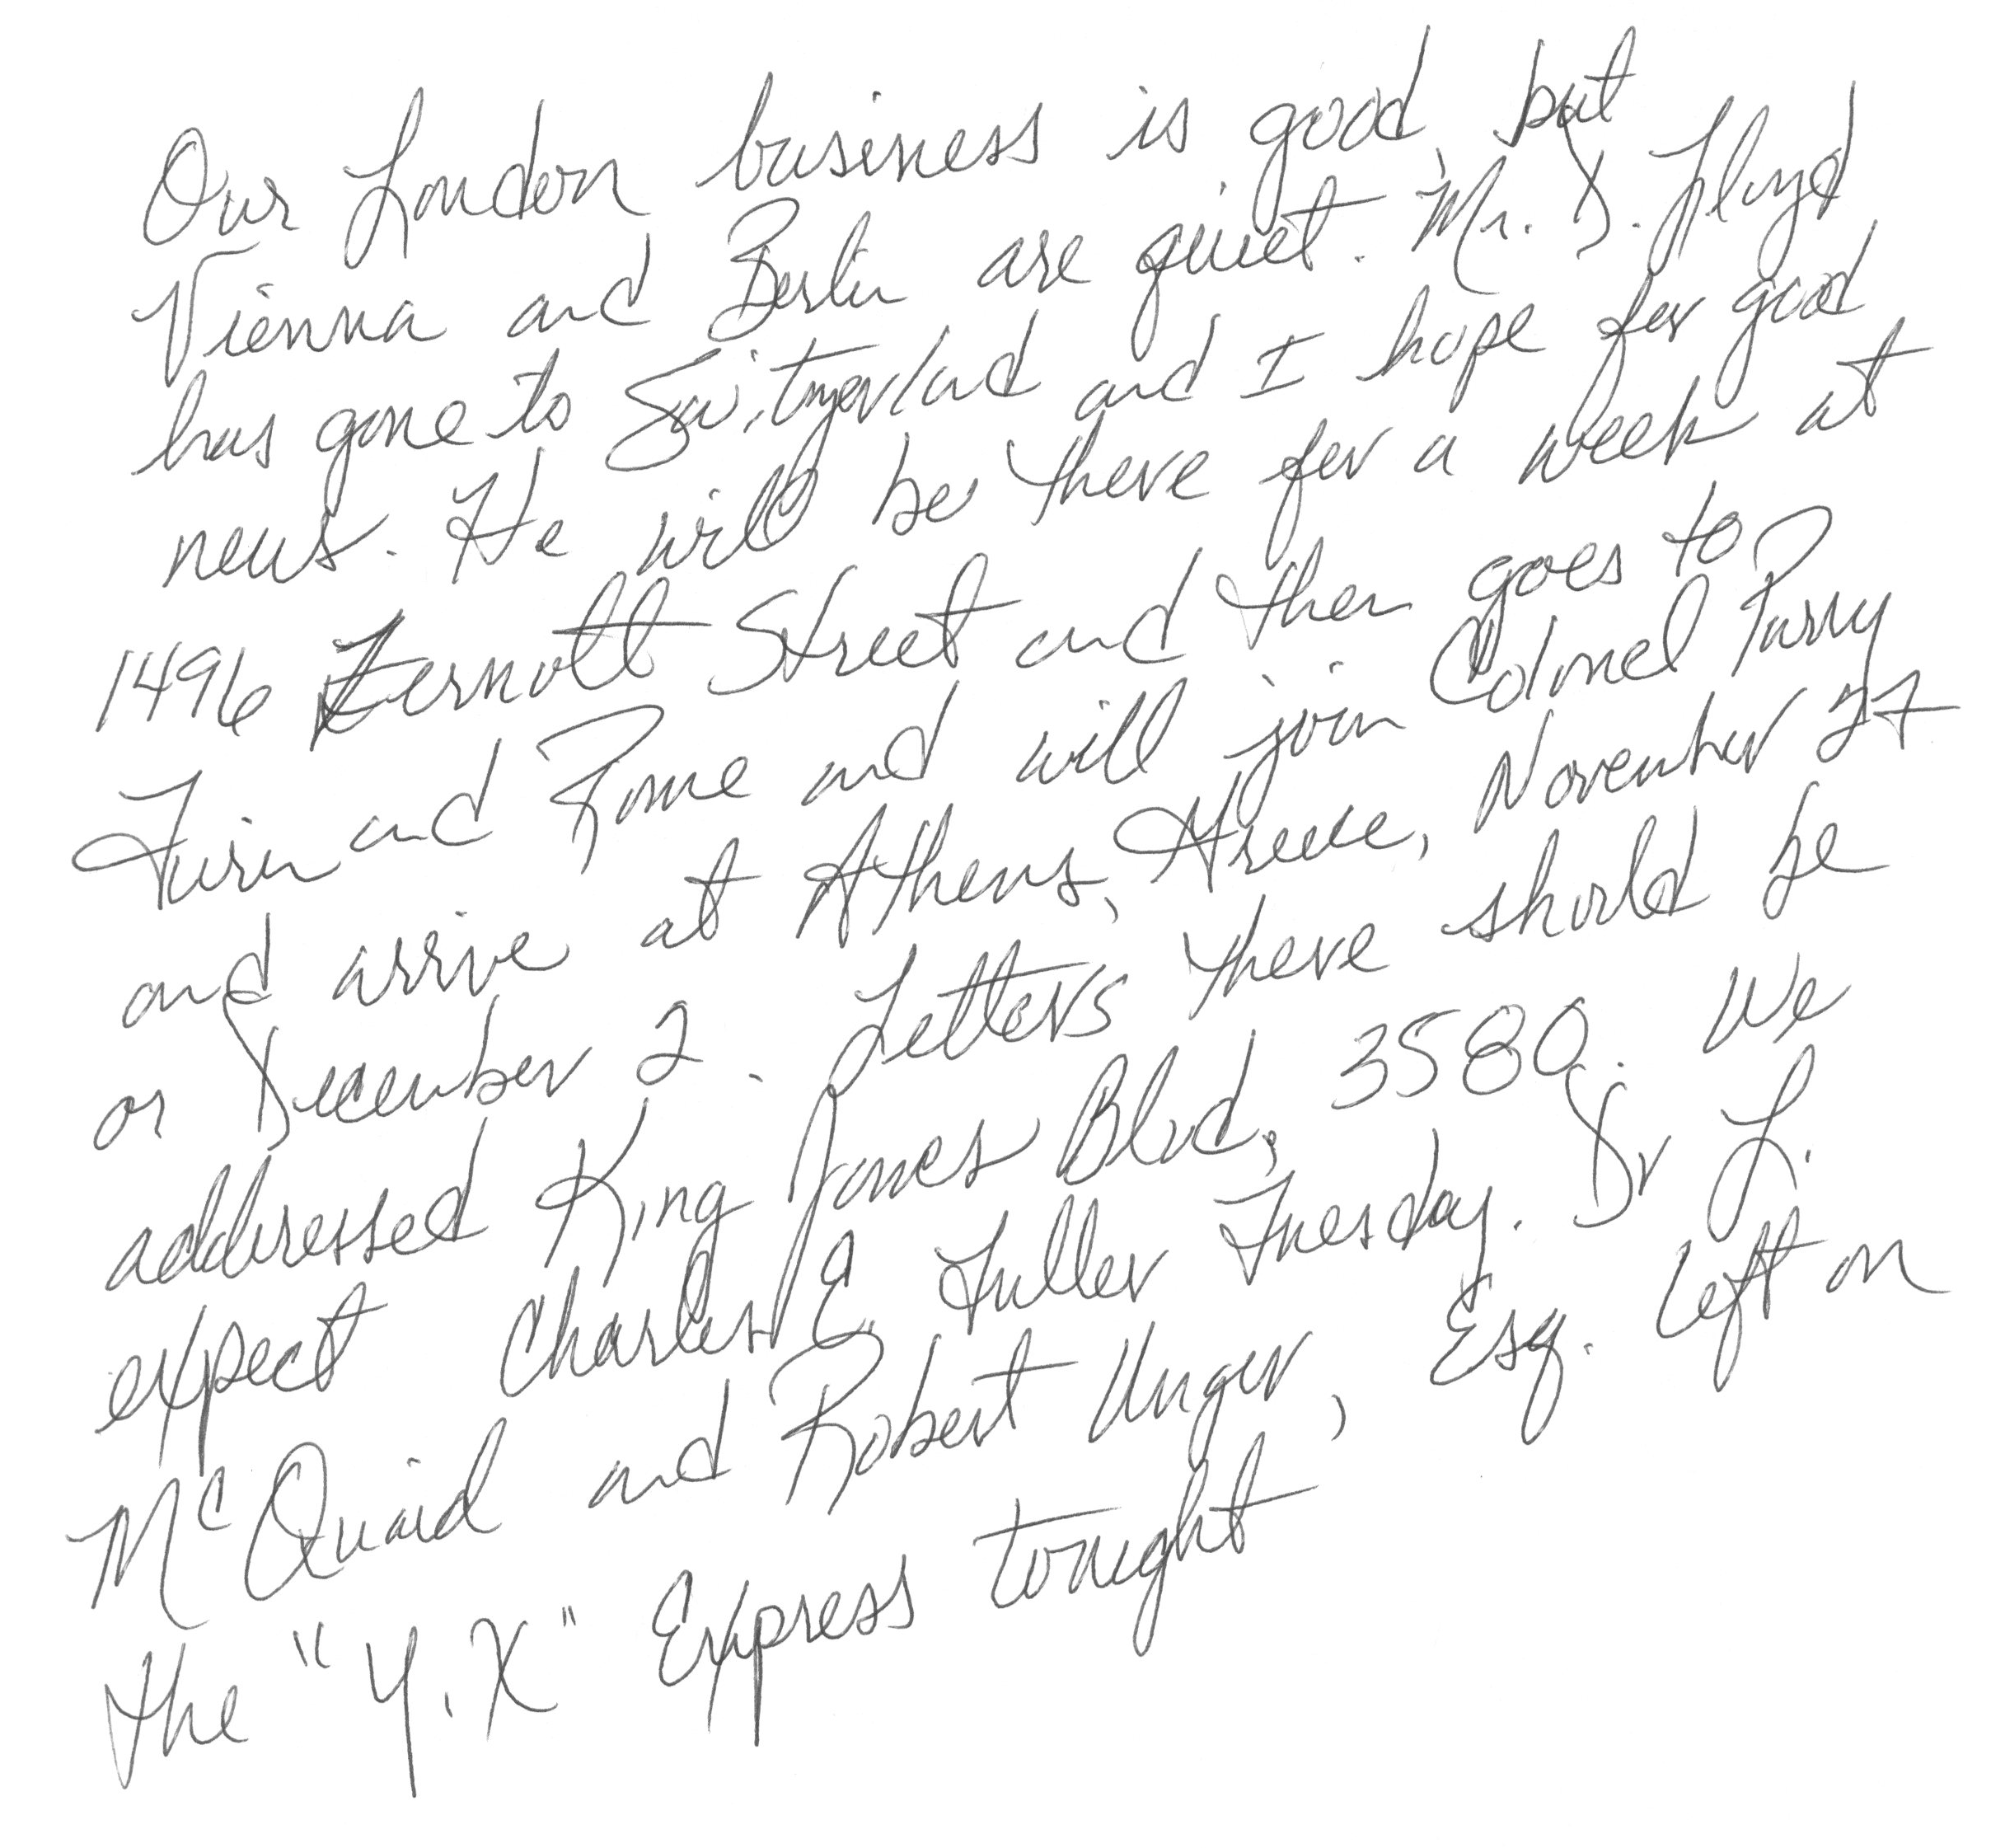 Our London business is good, but
Vienna and Berlin are quiet. Mr. D. Lloyd
has gone to Switzerland and I hope for good
news. He will be there for a week at
1496 Zermott Street and then goes to
Turin and Rome and will join Colonel Parry
and arrive at Athens, Greece, November 27
or December 2. Letters there should be
addressed King James Blvd, 3580. We
expect Charles E. Fuller Tuesday. Dr L.
McQuaid and Robert Unger, Esq. left on
the "Y.X" Express tonight